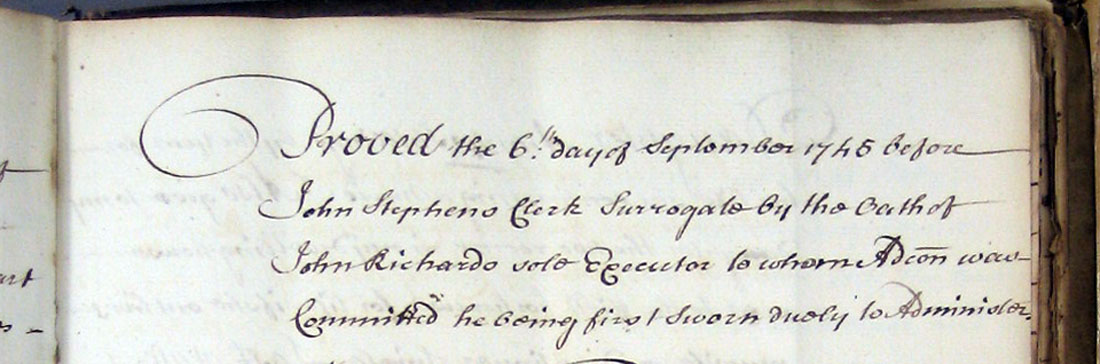 Proved the 6.th day of September 1745 before
John Stephens Clerk Surrogate by the Oath of
John Richards sole Executor to whom Adcōn was
Committed he being first sworn duely to Administer.